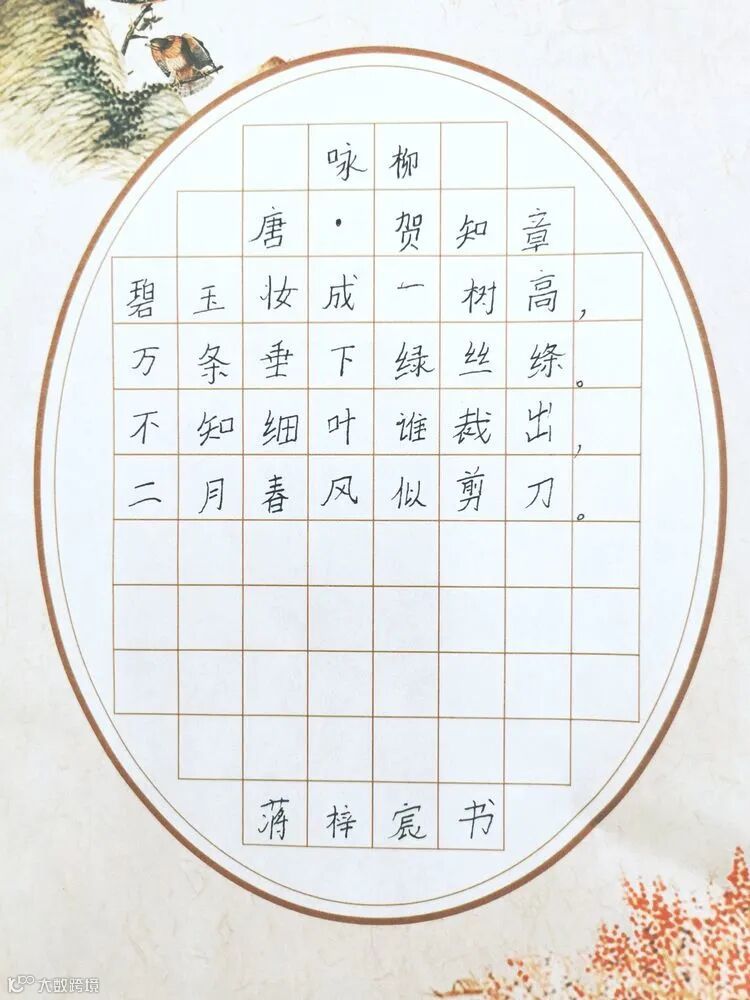 咏柳
唐·贺知章
碧玉妆成一树高，
万条垂下绿丝绦。
不知细叶谁裁出，
二月春风似剪刀。
蒋梓宸书
大数跨境